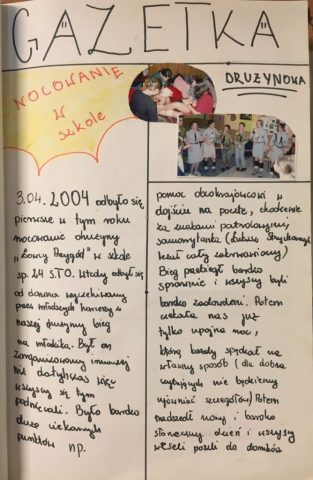 GAZETKA
DRUŻYNOWA
NOCOWANIE
W
szkole
3.04. 2004 odbyło się
pierwsze w tym roku
nocowanie drużyny
w szkole
sp. 24 S.T.O. Wtedy odbył się
od dawna wyczekiwany
przez młodszych harcerzy w
naszej drużynie bieg
na młodzika. Był on
zorganizowany inaczej
niż dotychczas więc
wszyscy się tym
podniecali. Było bardzo
dużo ciekawych
punktów np.
pomoc obcokrajowcowi w
dojściu na pocztę, chodzenie
za znakami patrolowymi,
samarytanka (Łukasz
leżał cały zakrwawiony)
Bieg przebiegł bardzo
sprawnie i wszyscy byli
bardzo zadowoleni. Potem
czekała nas już
tylko upojna noc,
którą każdy spędzał na
własny sposób (dla dobra
czytających nie będziemy
ujawniać szczegółów) Potem
nadszedł nowy i bardzo
słoneczny dzień i wszyscy
weseli poszli do domków